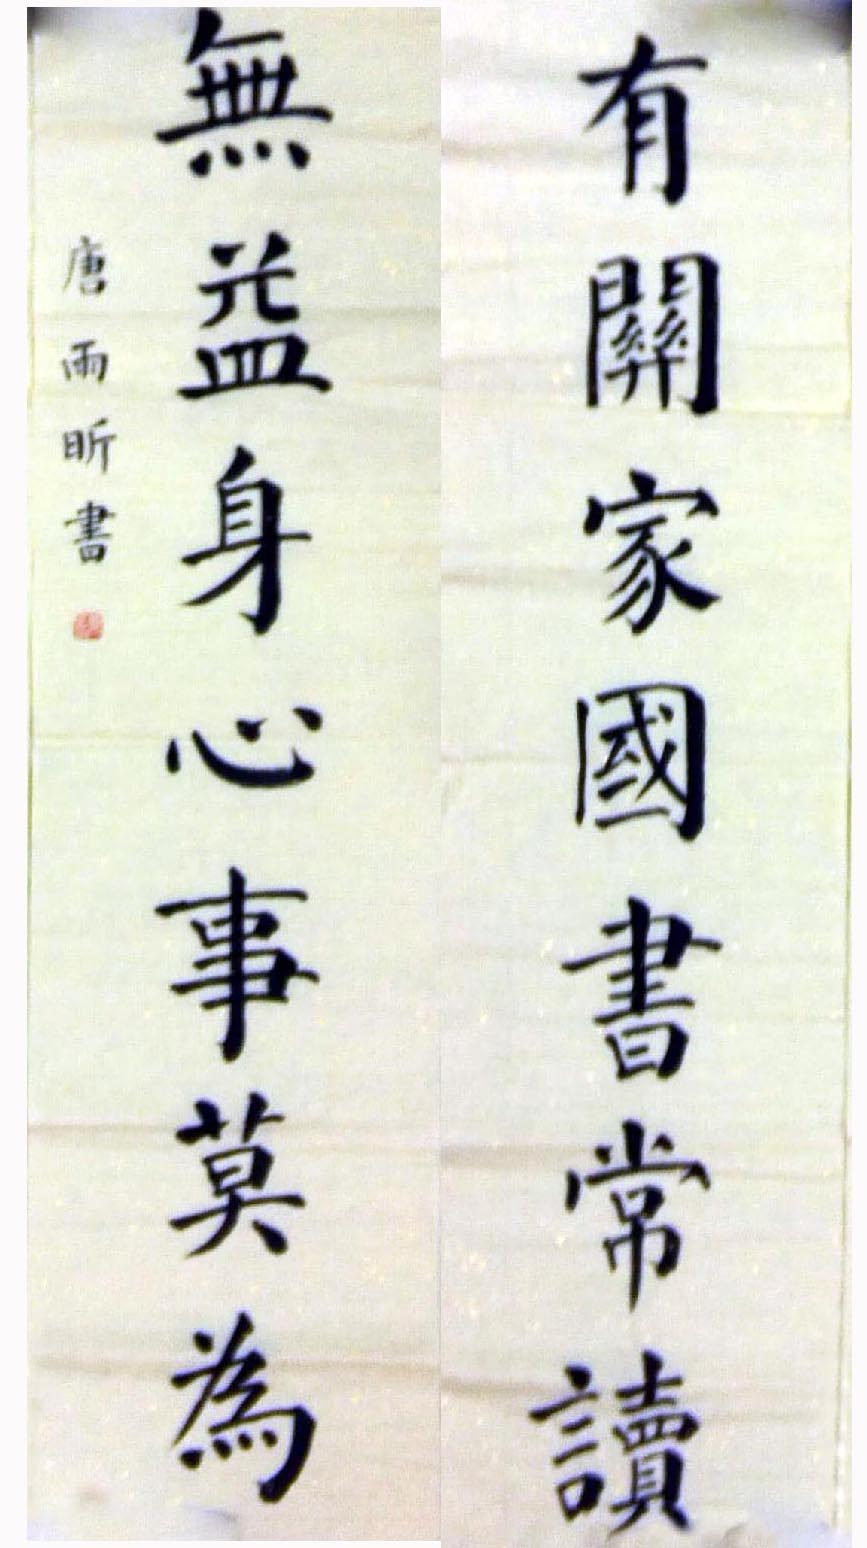 有關家國書常讀
無益身心事莫為
唐雨昕書